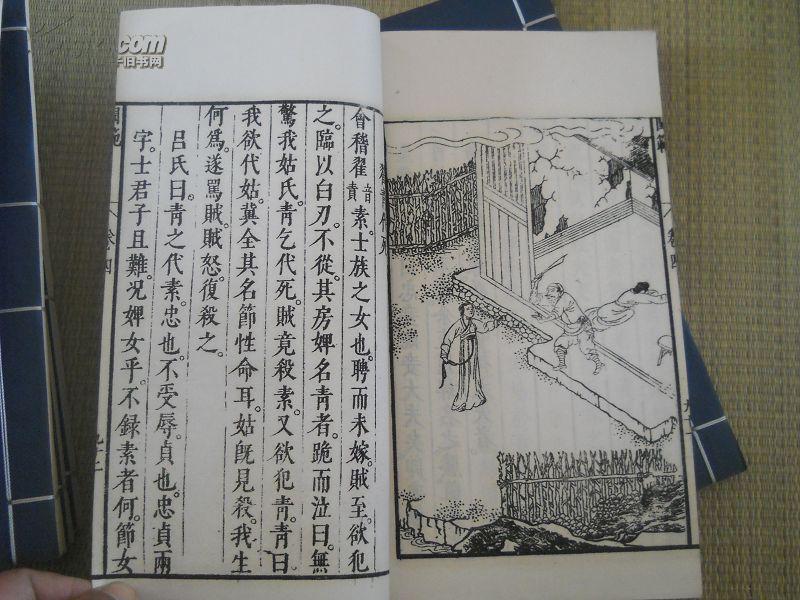 .com
千旧书网
會稽翟音賁素。士族之女也。聘而未嫁。賊至。欲犯
之。臨以白刃。不從。其房婢名青者。跪而泣曰。無
驚我姑氏。青乞代死。賊竟殺素。又欲犯青。青曰。
我欲代姑。冀全其名節性命耳。姑旣見殺。我生
何爲。遂罵賊。賊怒。復殺之。
呂氏曰。青之代素。忠也。不受辱。貞也。忠貞兩
字。士君子且難。况婢女乎。不録素者何。節女
閨範
卷四
九十二
閨範
卷四